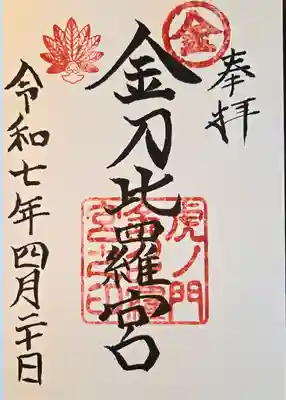 奉拝
金
金刀比羅宮
虎ノ門
宮之印
令和七年四月二十日